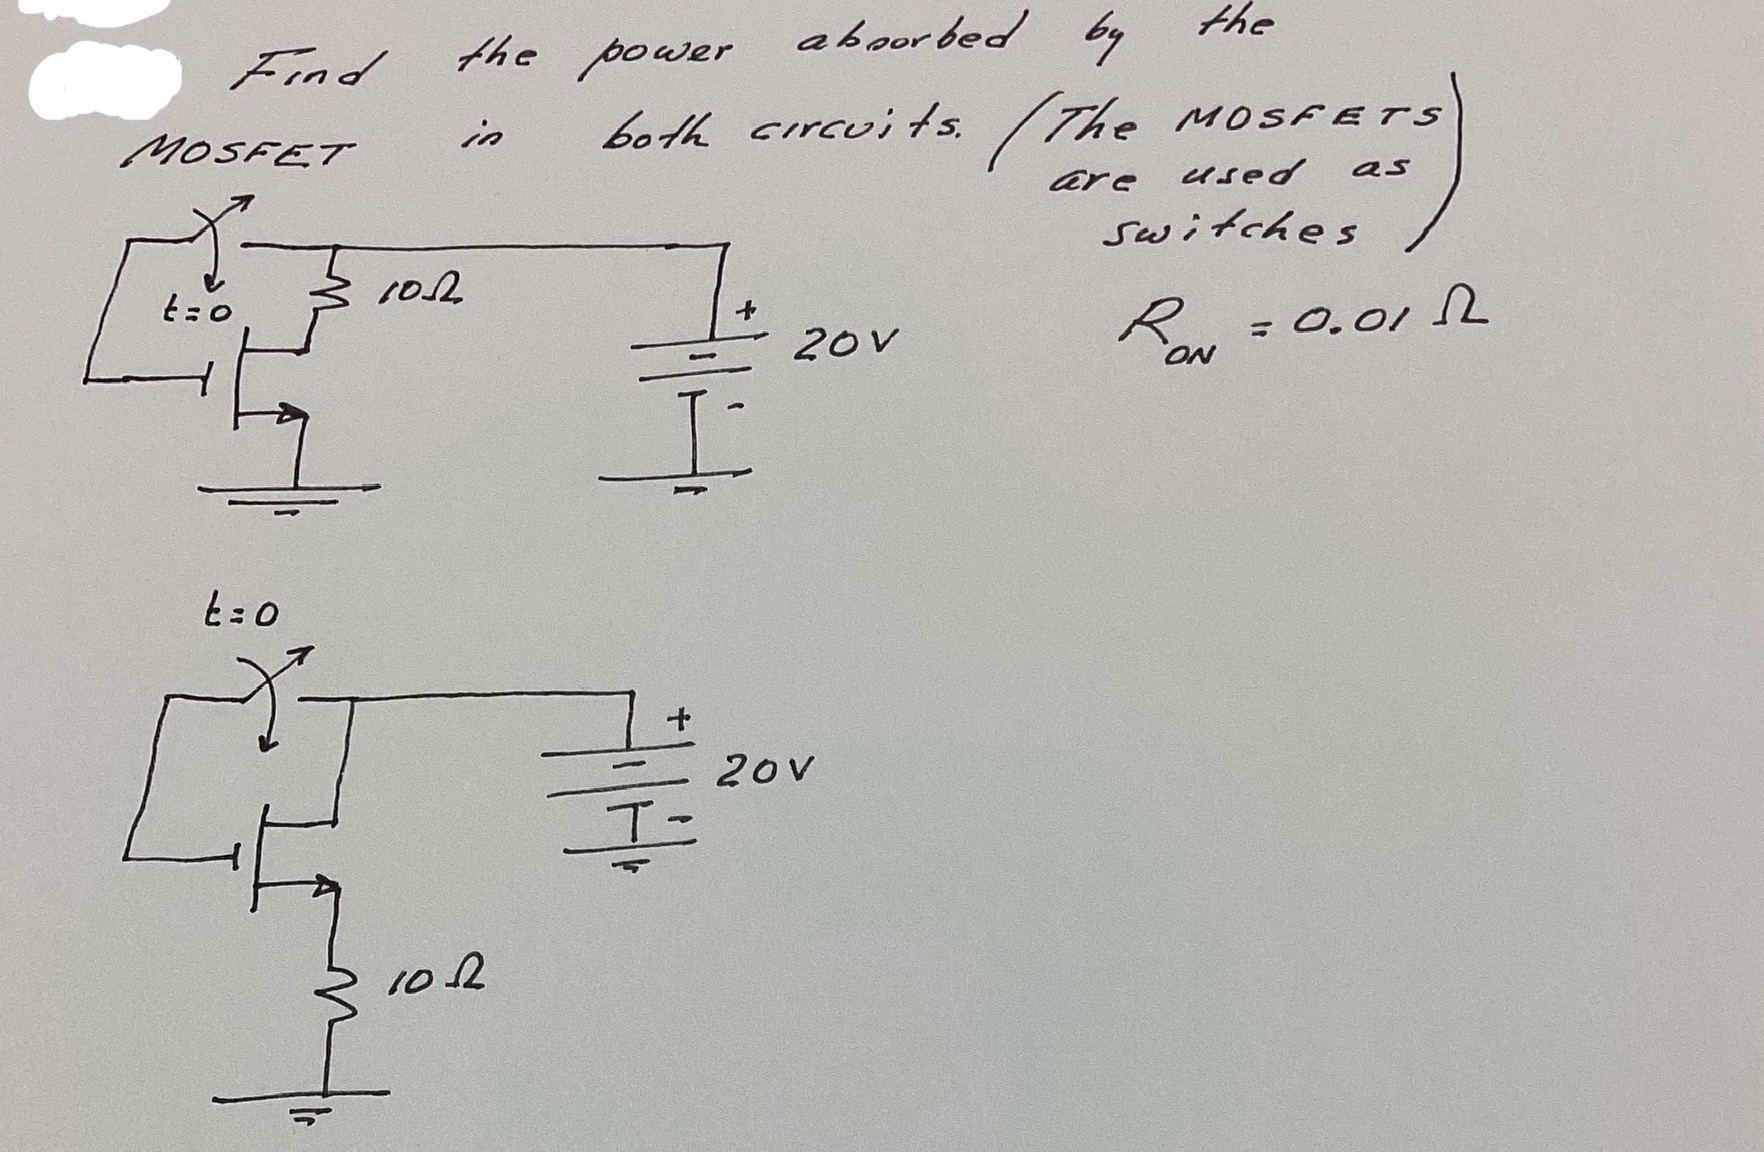 Find the power absorbed by the
MOSFET in both circuits. (The MOSFETS
are used as
switches)
t=0
10Ω
+
20V
-
R_ON = 0.01 Ω
t=0
+
20V
-
10Ω